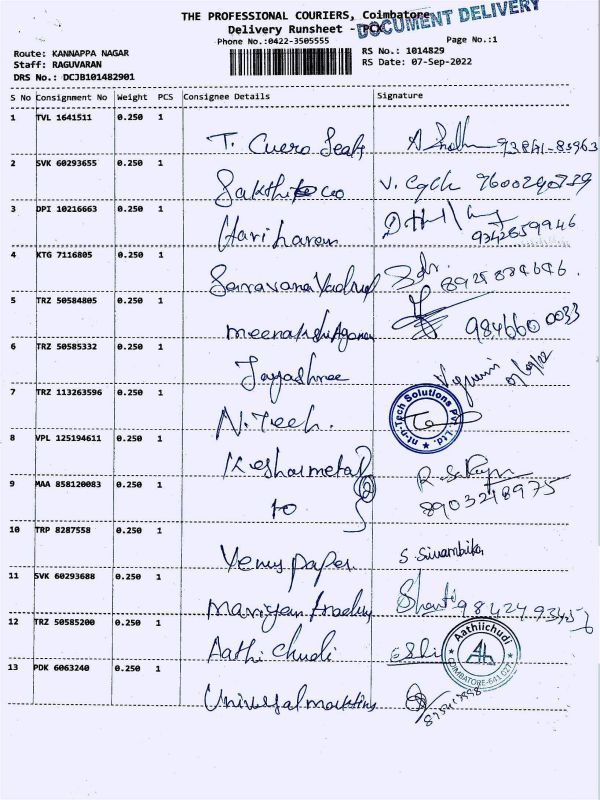 THE PROFESSIONAL COURIERS, Coimbatore
DOCUMENT DELIVERY
Delivery Runsheet -
Phone No.:0422-3505555
Page No.:1
Route: KANNAPPA NAGAR
RS No.: 1014829
Staff: RAGUVARAN
RS Date: 07-Sep-2022
DRS No.: DCJB101482901
S No Consignment No Weight PCS Consignee Details Signature
1 TVL 1641511 0.250 1
T. Cuero Seals
2 SVK 60293655 0.250 1
Sakthi co
V. 9600290739
3 DPI 10216663 0.250 1
Hariharan
9342659946
4 KTG 7116805 0.250 1
Saravana
5 TRZ 50584805 0.250 1
meenakshi Agencu
984660 0033
6 TRZ 50585332 0.250 1
Jayashree
7 TRZ 113263596 0.250 1
N. Tech.
n-Tech Solutions Pvt. Ltd.
8 VPL 125194611 0.250 1
Keshar metal
9 MAA 858120083 0.250 1
to
8903248975
10 TRP 8287558 0.250 1
Venus paper
S. Sivambika
11 SVK 60293688 0.250 1
Mariyan
Shanti
12 TRZ 50585200 0.250 1
Aathi Chudi
Aathiichudi
COIMBATORE-641 027.
13 PDK 6063240 0.250 1
Universal marketing